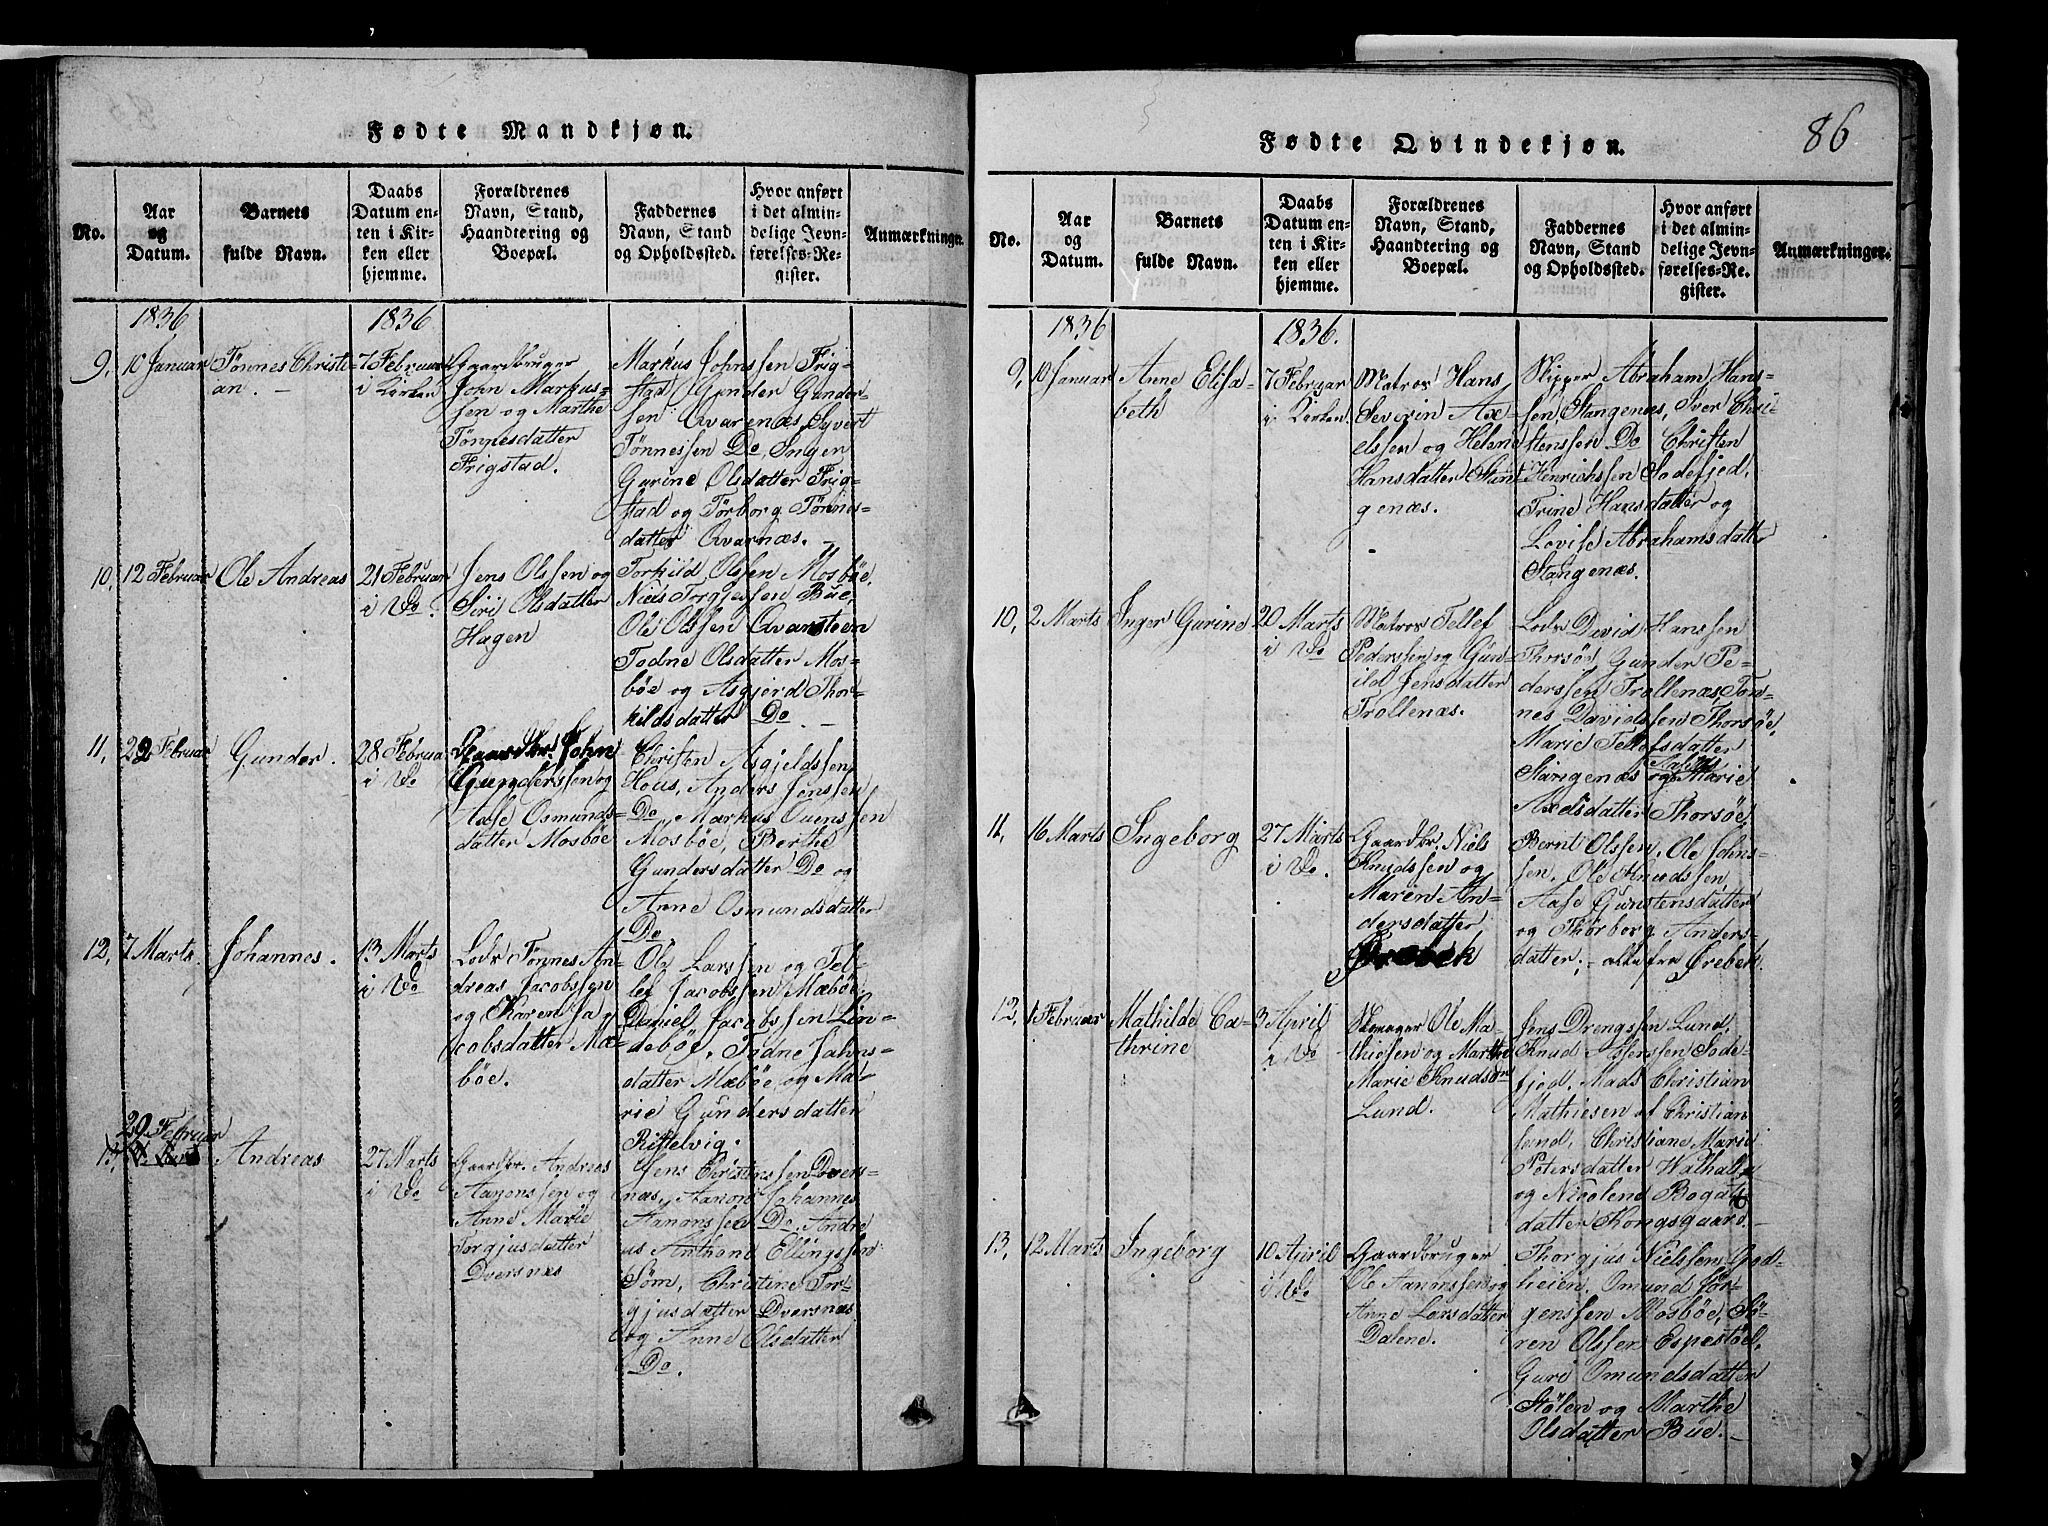 Fødte Mandkjøn.
No.
Aar
og
Datum.
Barnets
fulde Navn.
Daabs
Datum en-
ten i Kir-
ken eller
hjemme.
Forældrenes
Navn, Stand,
Haandtering og
Boepæl.
Faddernes
Navn, Stand
og Opholdssted.
Hvor anført
i det almin-
delige Jevn-
førelses-Re-
gister.
Anmærkninger.
1836
1836
9,
10 Januar
Tønnes Christi-
an. -
7 Februar
i Kirken
Gaardbruger
John Markus-
sen og Marthe
Tønnesdatter
Frigstad.
Markus Johnssen Frig-
stad Gunder Gunder-
sen Qvarenæs, Syvert
Tønnessen Do, Inger
Gurine Olsdatter Frig-
stad og Tørborg Tønnes-
datter Qvarnæs. -
10,
12 Februar
Ole Andreas
21 Februar
i Do.
Jens Olssen og
Siri Olsdatter
Hagen
Torkild Olssen Mosbøe,
Niels Torgjessen Bue,
Ole Olssen Qvarsteen
Todne Olsdatter Mos-
bøe og Asgjerd Thor-
kildsdatter Do. -
11,
22 Februar
Gunder.
28 Februar
i Do
Gaardbr. John
Gunderssen og
Aase Osmunds-
datter Mosbøe
Christen Asgjeldssen
Hous, Anders Jenssen
Do, Markus Ouenssen
Mosbøe, Berthe
Gundersdatter Do og
Anne Osmundsdatter
Do
12,
7 Marts.
Johannes.
13 Marts
i Do
Lods Tønnes An-
dreas Jacobssen
og Karen Ja-
cobsdatter Mæ-
bøe.
Ole Larssen og Tel-
lef Jacobssen Mæbøe.
Daniel Jacobssen Lin-
debøe, Todne Jahns-
datter Mæbøe og Ma-
rie Gundersdatter
Risselvig.
13,
29 Februar
Andreas
27 Marts
i Do
Gaardbr. Andreas
Aanonssen og
Anne Marie
Torgjusdatter
Dversnæs
Jens Christenssen Dvers-
næs, Aanon Johannes
Aanonssen Do, Andre
us Anthoni Ellingssen
Søm, Christine Tor-
gjusdatter Dversnæs
og Anne Olsdatter
Do.
86
Fødte Qvindekjøn.
No.
Aar
og
Datum.
Barnets
fulde Navn.
Daabs
Datum en-
ten i Kir-
ken eller
hjemme.
Forældrenes
Navn, Stand,
Haandtering og
Boepæl.
Faddernes
Navn, Stand
og Opholdssted.
Hvor anført
i det almin-
delige Jevn-
førelses-Re-
gister.
Anmærkninger.
1836
1836.
9,
10 Januar
Anne Elisa-
beth
7 Februar
i Kirken.
Matros Hans
Severin Ax-
elssen og Helene
Hansdatter Stan-
genæs.
Skipper Abraham Hans-
sen, Stangenæs, Iver Chri-
stenssen Do Christen
Henrichssen Sodefjed.
Trine Hansdatter og
Lovise Abrahamsdatter
Stangenæs.
10,
2 Marts
Inger Gurine
20 Marts
i Do
Matros Tellef
Pederssen og Gun-
ild Jensdatter
Trollenæs.
Lods David Hanssen
Thorsøe, Gunder Pe-
derssen Trollenæs, Tøn-
nes Davidssen Thorsøe,
Marie Tellefsdatter
Stangenæs og Marie
Axelsdatter Thorsøe.
11,
16 Marts
Ingeborg
27 Marts
i Do.
Gaardbr. Niels
Knudssen og
Maren An-
dersdatter
Ørebek
Bernt Olssen, Ole Johns-
sen, Ole Knudssen
Aase Gunstensdatter
og Thorborg Anders-
datter; - alle fra Ørebek.
12,
1 Februar
Mathilde Ca-
thrine
3 April
i Do
Skomager Ole Ma-
thiesen og Marthe
Marie Knudson
Lund.
Jens Drengssen Lund,
Knud Asserssen Sode-
fjed, Mads Christian
Mathiesen af Christian
sand, Christiane Marie
Petersdatter Walhalla
og Nicolene Bogat-
datter Kongsgaard. -
13,
12 Marts
Ingeborg
10 April
i Do
Gaardbruger
Ole Aanonssen og
Anne Larsdatter
Dalene.
Thorgjus Nielssen God-
heien, Omund Jør-
genssen Mosbøe, Sø-
ren Olssen Espestøel,
Guri Omundsdatter
Stølen og Marthe
Olsdatter Bue. -